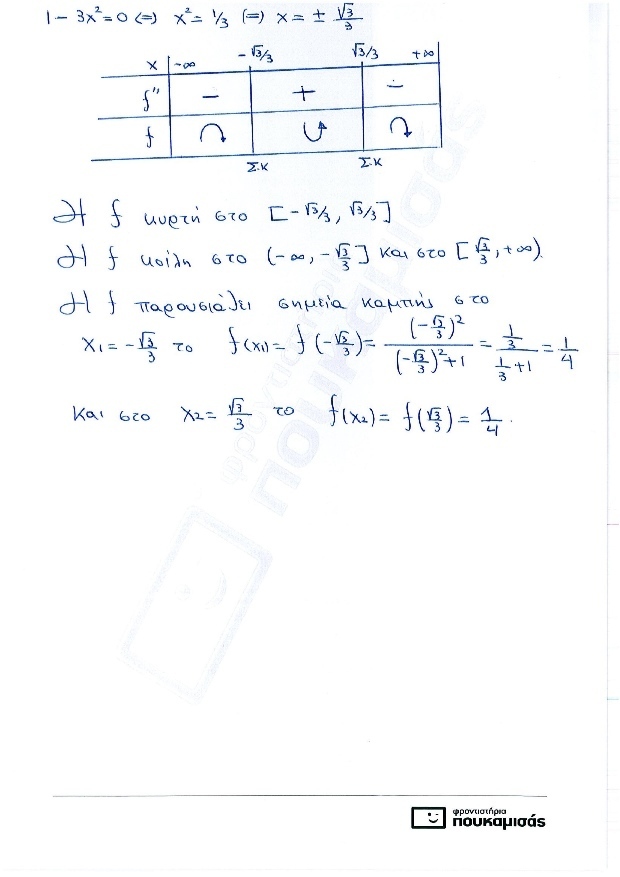 1 - 3x² = 0 (=) x² = 1/3 (=) x = ± √3/3
x -∞ -√3/3 √3/3 +∞
f'' - + -
f
Σ.Κ Σ.Κ
Η f κυρτή στο [-√3/3, √3/3]
Η f κοίλη στο (-∞, -√3/3] και στο [√3/3, +∞).
Η f παρουσιάζει σημεία καμπής στο
x₁ = -√3/3 το f(x₁) = f(-√3/3) = (-√3/3)²/((-√3/3)²+1) = (1/3)/(1/3+1) = 1/4
και στο x₂ = √3/3 το f(x₂) = f(√3/3) = 1/4.
φροντιστήρια
πουκαμισάς
φροντιστήρια
πουκαμισάς